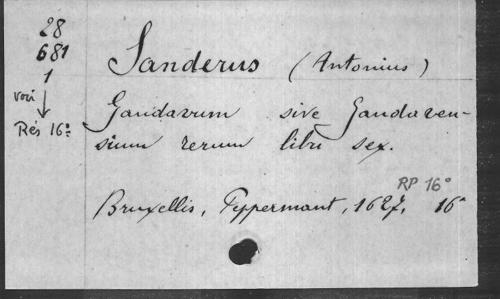 28
681
1
voir
Rés 16°
Sanderus (Antonius)
Gandavum sive Gandaven-
sium rerum libri sex.
RP 16°
Bruxellis, Peppermant, 1627, 16°